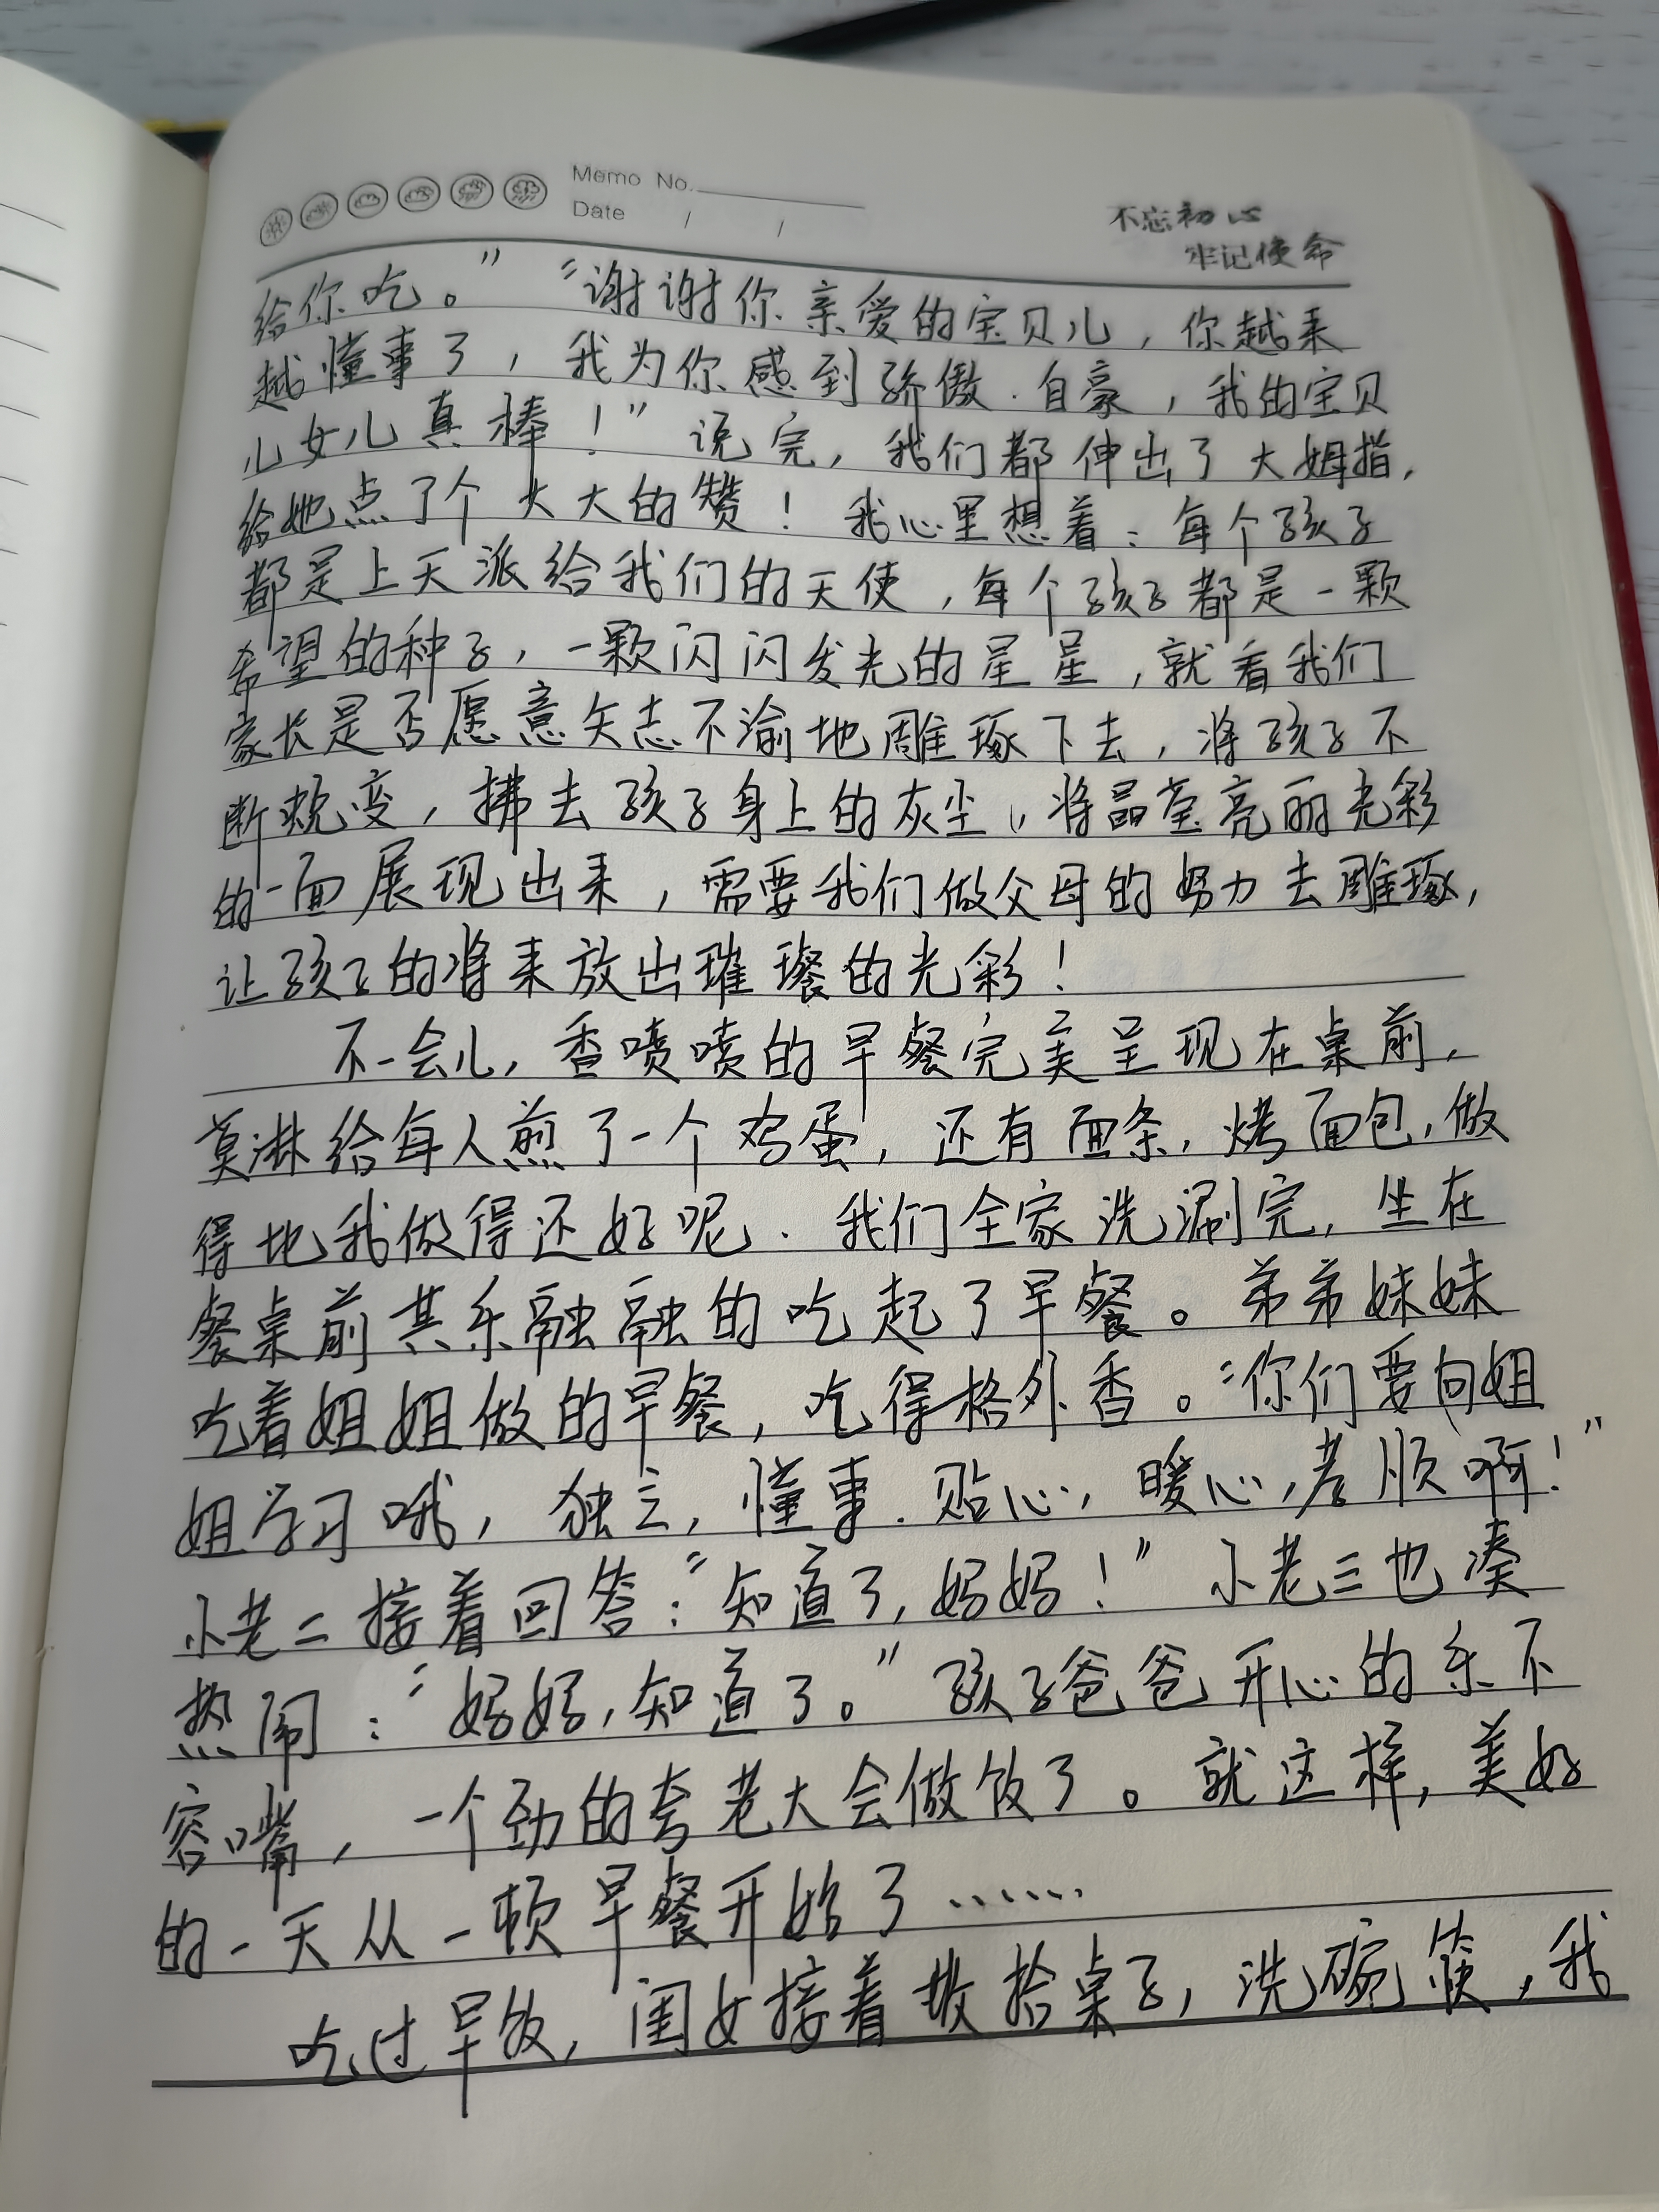 Memo No.
Date / /
不忘初心
牢记使命
给你吃。”“谢谢你亲爱的宝贝儿，你越来
越懂事了，我为你感到骄傲.自豪，我的宝贝
儿女儿真棒！”说完，我们都伸出了大姆指，
给她点了个大大的赞！我心里想着：每个孩子
都是上天派给我们的天使，每个孩子都是一颗
希望的种子，一颗闪闪发光的星星，就看我们
家长是否愿意矢志不渝地雕琢下去，将孩子不
断蜕变，拂去孩子身上的灰尘，将晶莹亮丽光彩
的一面展现出来，需要我们做父母的努力去雕琢，
让孩子的将来放出璀璨的光彩！
不一会儿，香喷喷的早餐完美呈现在桌前，
莫淋给每人煎了一个鸡蛋，还有面条，烤面包，做
得比我做得还好呢.我们全家洗涮完，坐在
餐桌前其乐融融的吃起了早餐。弟弟妹妹
吃着姐姐做的早餐，吃得格外香。“你们要向姐
姐学习哦，独立，懂事.贴心，暖心，孝顺啊！”
小老二接着回答：“知道了，妈妈！”小老三也凑
热闹：“妈妈，知道了。”孩子爸爸开心的乐不
容嘴，一个劲的夸老大会做饭了。就这样，美好
的一天从一顿早餐开始了……
吃过早饭，闺女接着收拾桌子，洗碗筷，我